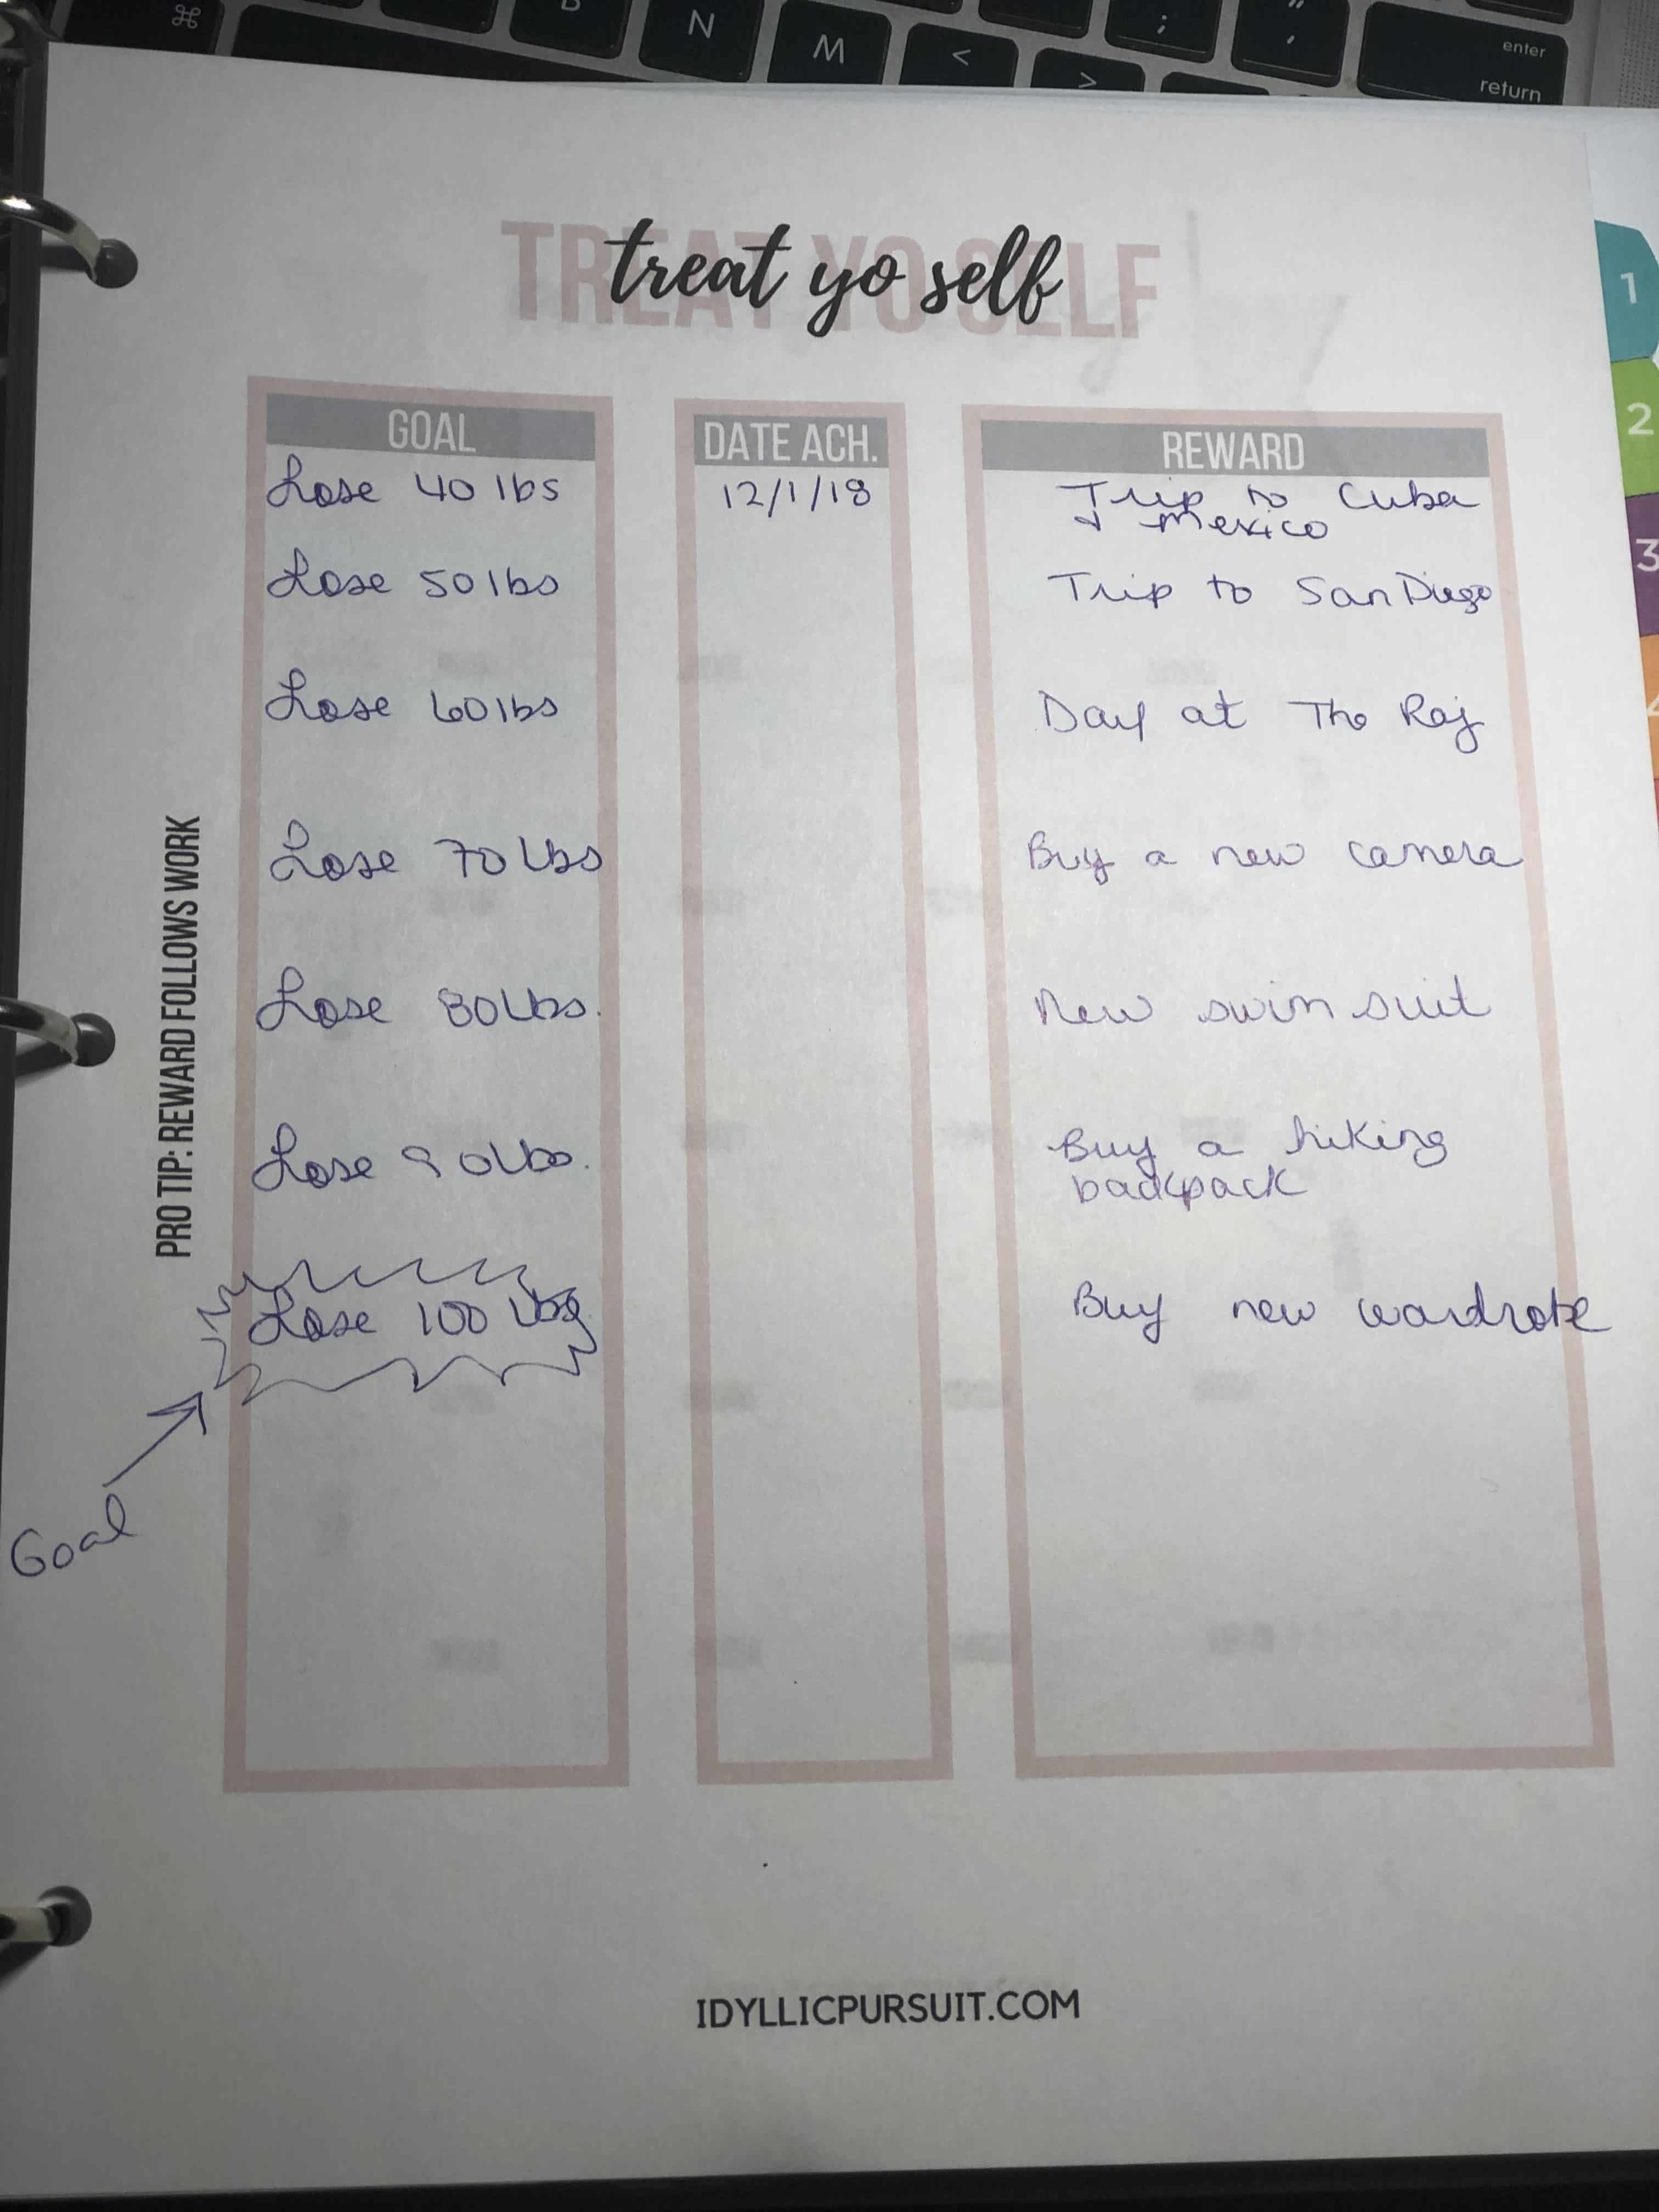 ⌘ B N M < > ; : " ' enter
return
TREAT YO SELF
treat yo self
GOAL DATE ACH. REWARD
Lose 40 lbs 12/1/18 Trip to Cuba
+ Mexico
Lose 50 lbs Trip to San Diego
Lose 60 lbs Day at The Raj
Lose 70 Lbs Buy a new camera
Lose 80 Lbs. New swim suit
Lose 90 Lbs. Buy a hiking
backpack
Lose 100 Lbs. Buy new wardrobe
Goal
PRO TIP: REWARD FOLLOWS WORK
IDYLLICPURSUIT.COM
1
2
3
4